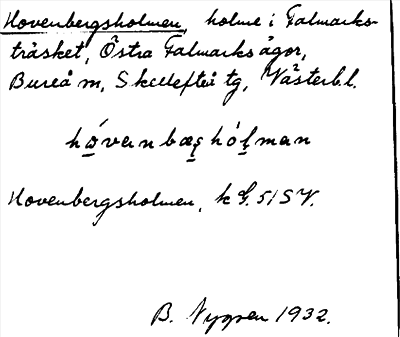 Hovenbergsholmen, holme i Falmarks-
träsket, Östra Falmarks ägor,
Bureå sn, Skellefteå tg, Västerb. l.
Hovenbergsholmen, k G. 51 SV.
B. Nygren 1932.